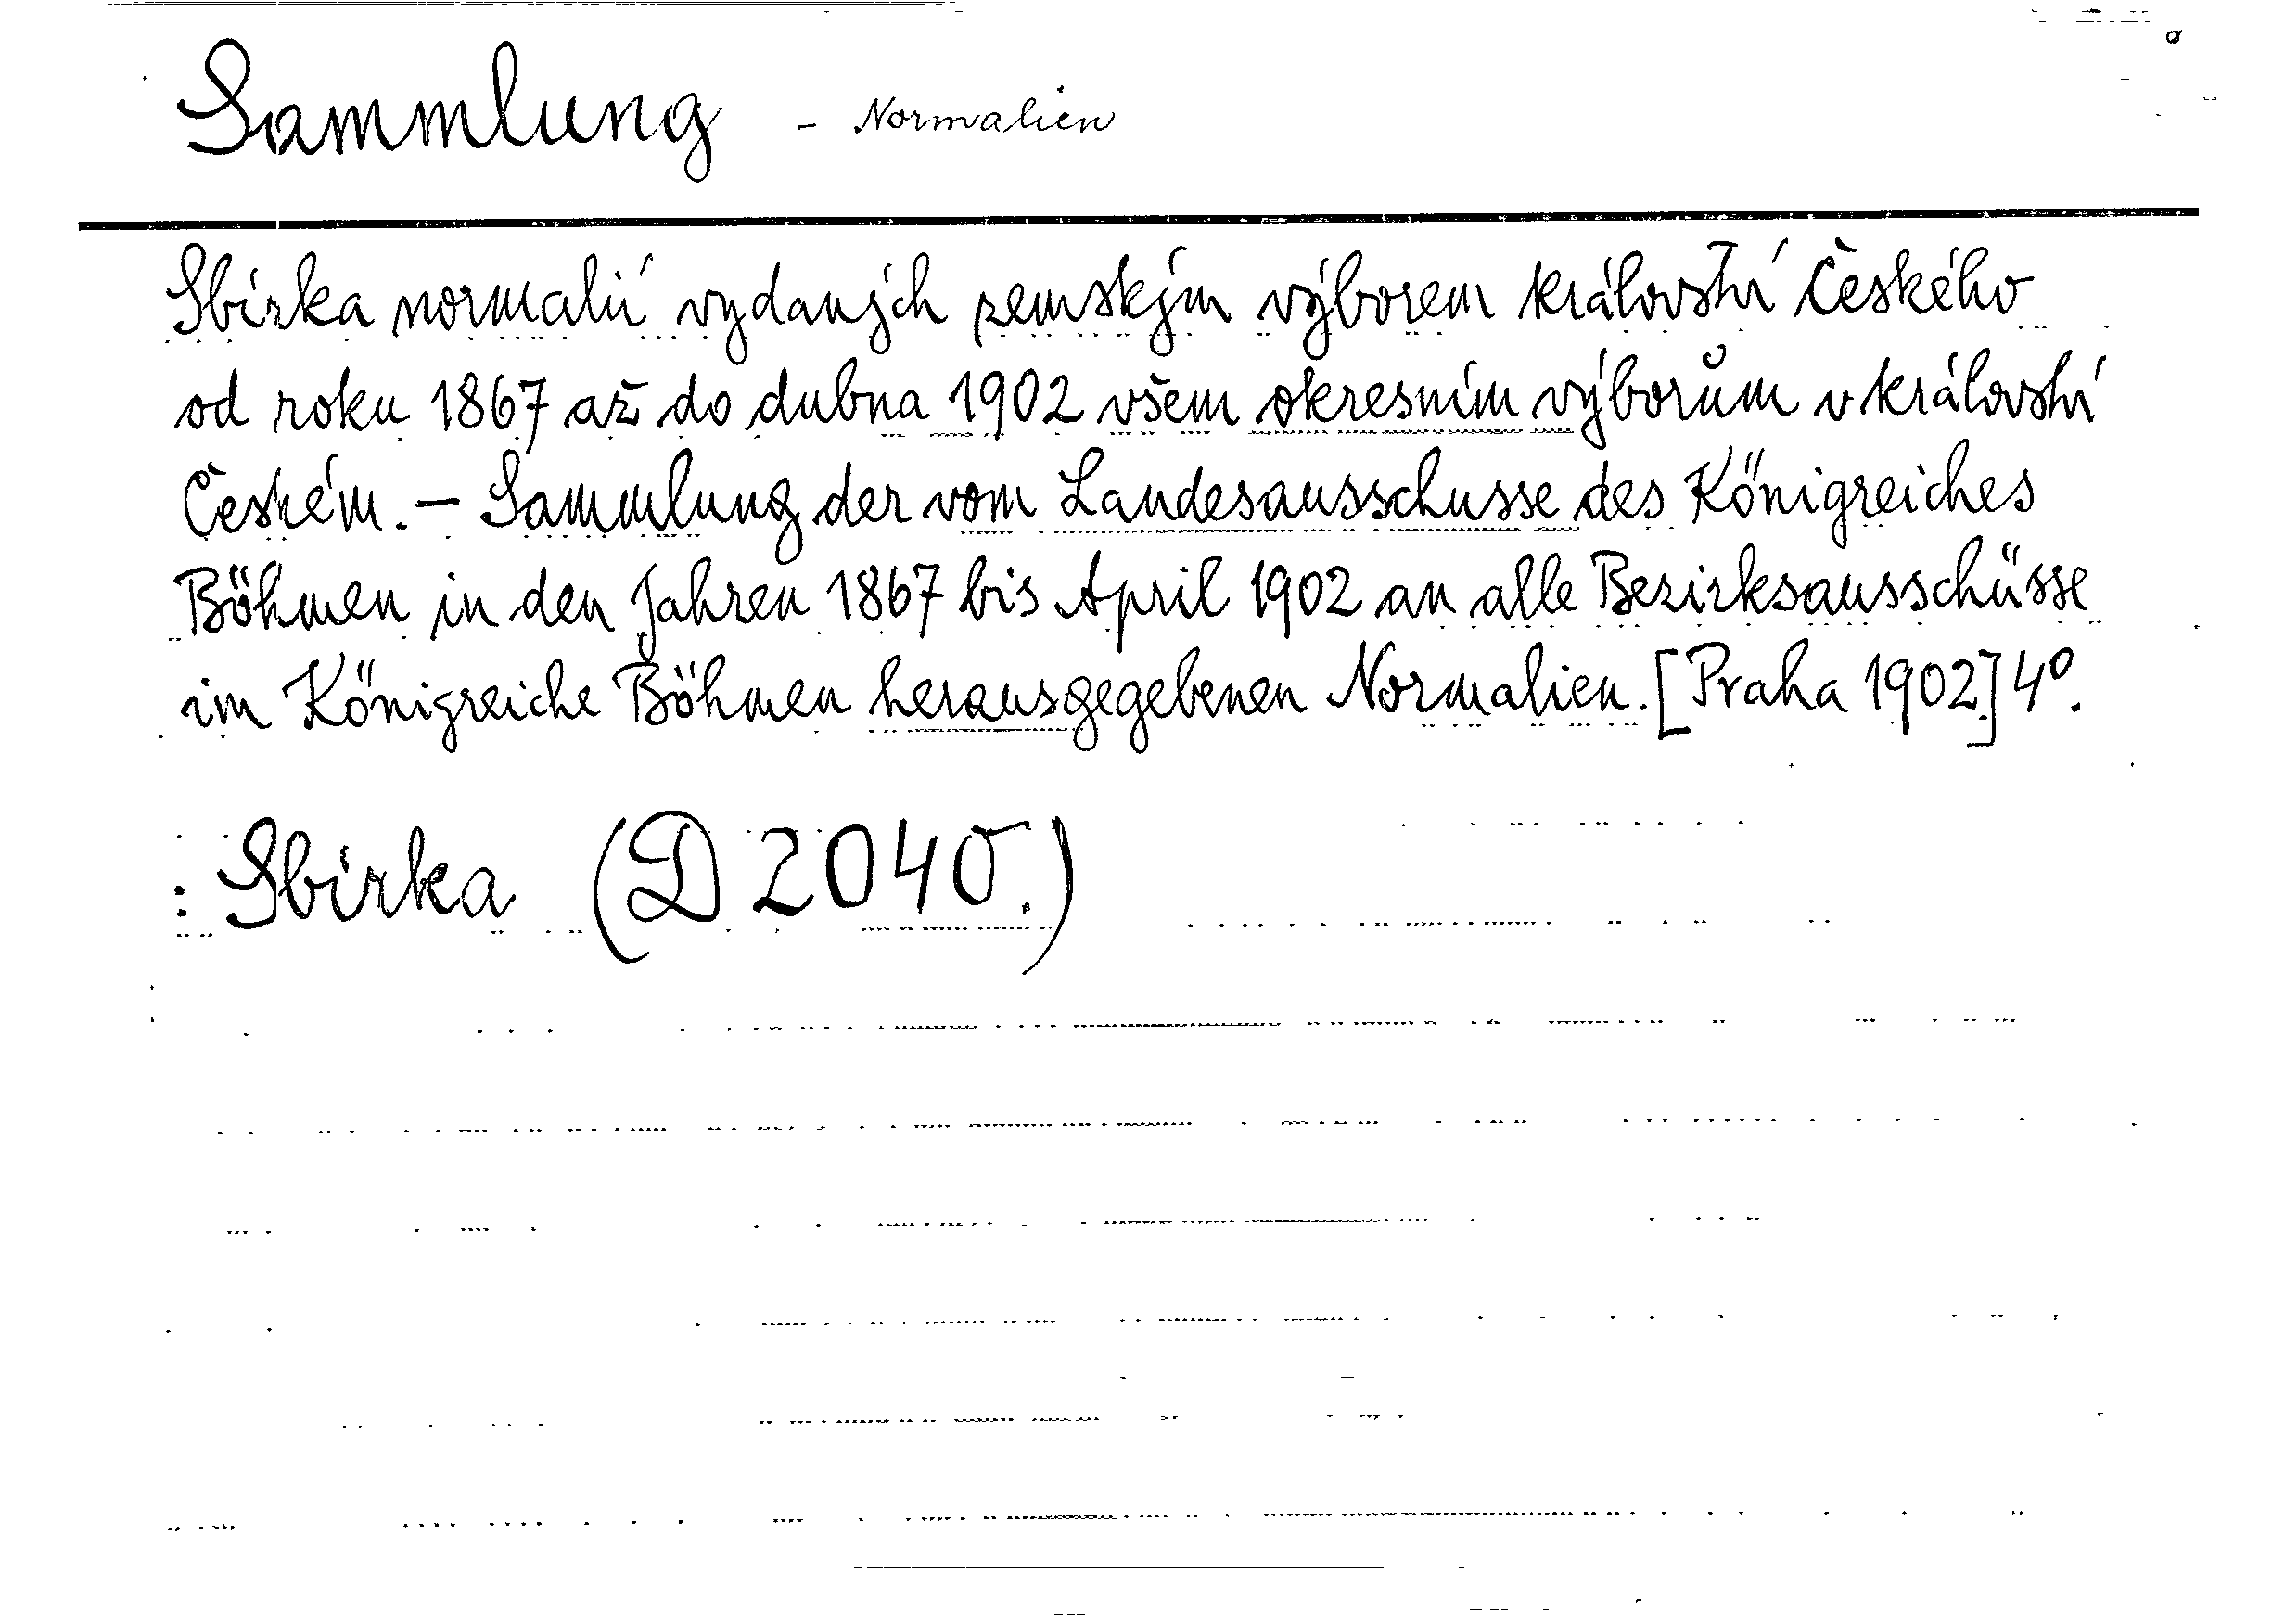 Sammlung - Normalien
Sbírka normalií vydaných zemským výborem království Českého
od roku 1867 až do dubna 1902 všem okresním výborům v království
Českém. — Sammlung der vom Landesausschusse des Königreiches
Böhmen in den Jahren 1867 bis April 1902 an alle Bezirksausschüsse
im Königreiche Böhmen herausgegebenen Normalien. [Praha 1902] 4º.
: Sbírka (D 2040.)